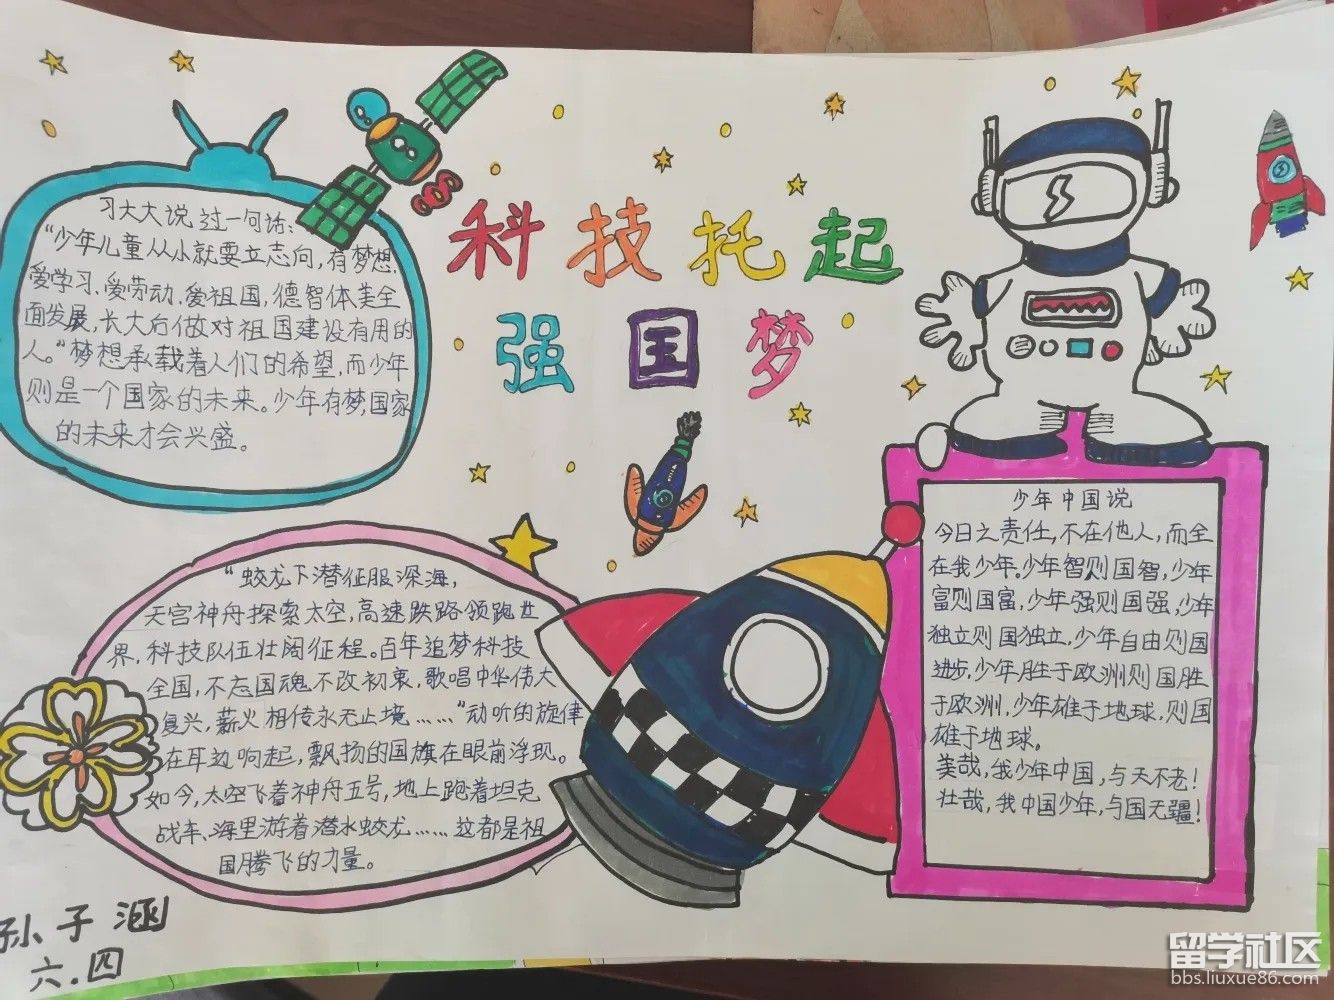 科技托起
强国梦
习大大说过一句话:
“少年儿童从小就要立志向,有梦想,
爱学习、爱劳动、爱祖国,德智体美全
面发展,长大后做对祖国建设有用的
人。”梦想承载着人们的希望,而少年
则是一个国家的未来。少年有梦,国家
的未来才会兴盛。
“蛟龙下潜征服深海,
天宫神舟探索太空,高速跌路领跑世
界,科技队伍壮阔征程。百年追梦科技
全国,不忘国魂不改初衷,歌唱中华伟大
复兴,薪火相传永无止境……”动听的旋律
在耳边响起,飘扬的国旗在眼前浮现。
如今,太空飞着神舟五号,地上跑着坦克
战车、海里游着潜水蛟龙……这都是祖
国腾飞的力量。
少年中国说
今日之责任,不在他人,而全
在我少年。少年智则国智,少年
富则国富,少年强则国强,少年
独立则国独立,少年自由则国
进步,少年胜于欧洲则国胜
于欧洲,少年雄于地球,则国
雄于地球。
美哉,我少年中国,与天不老!
壮哉,我中国少年,与国无疆!
孙子涵
六.四
留学社区
bbs.liuxue86.com